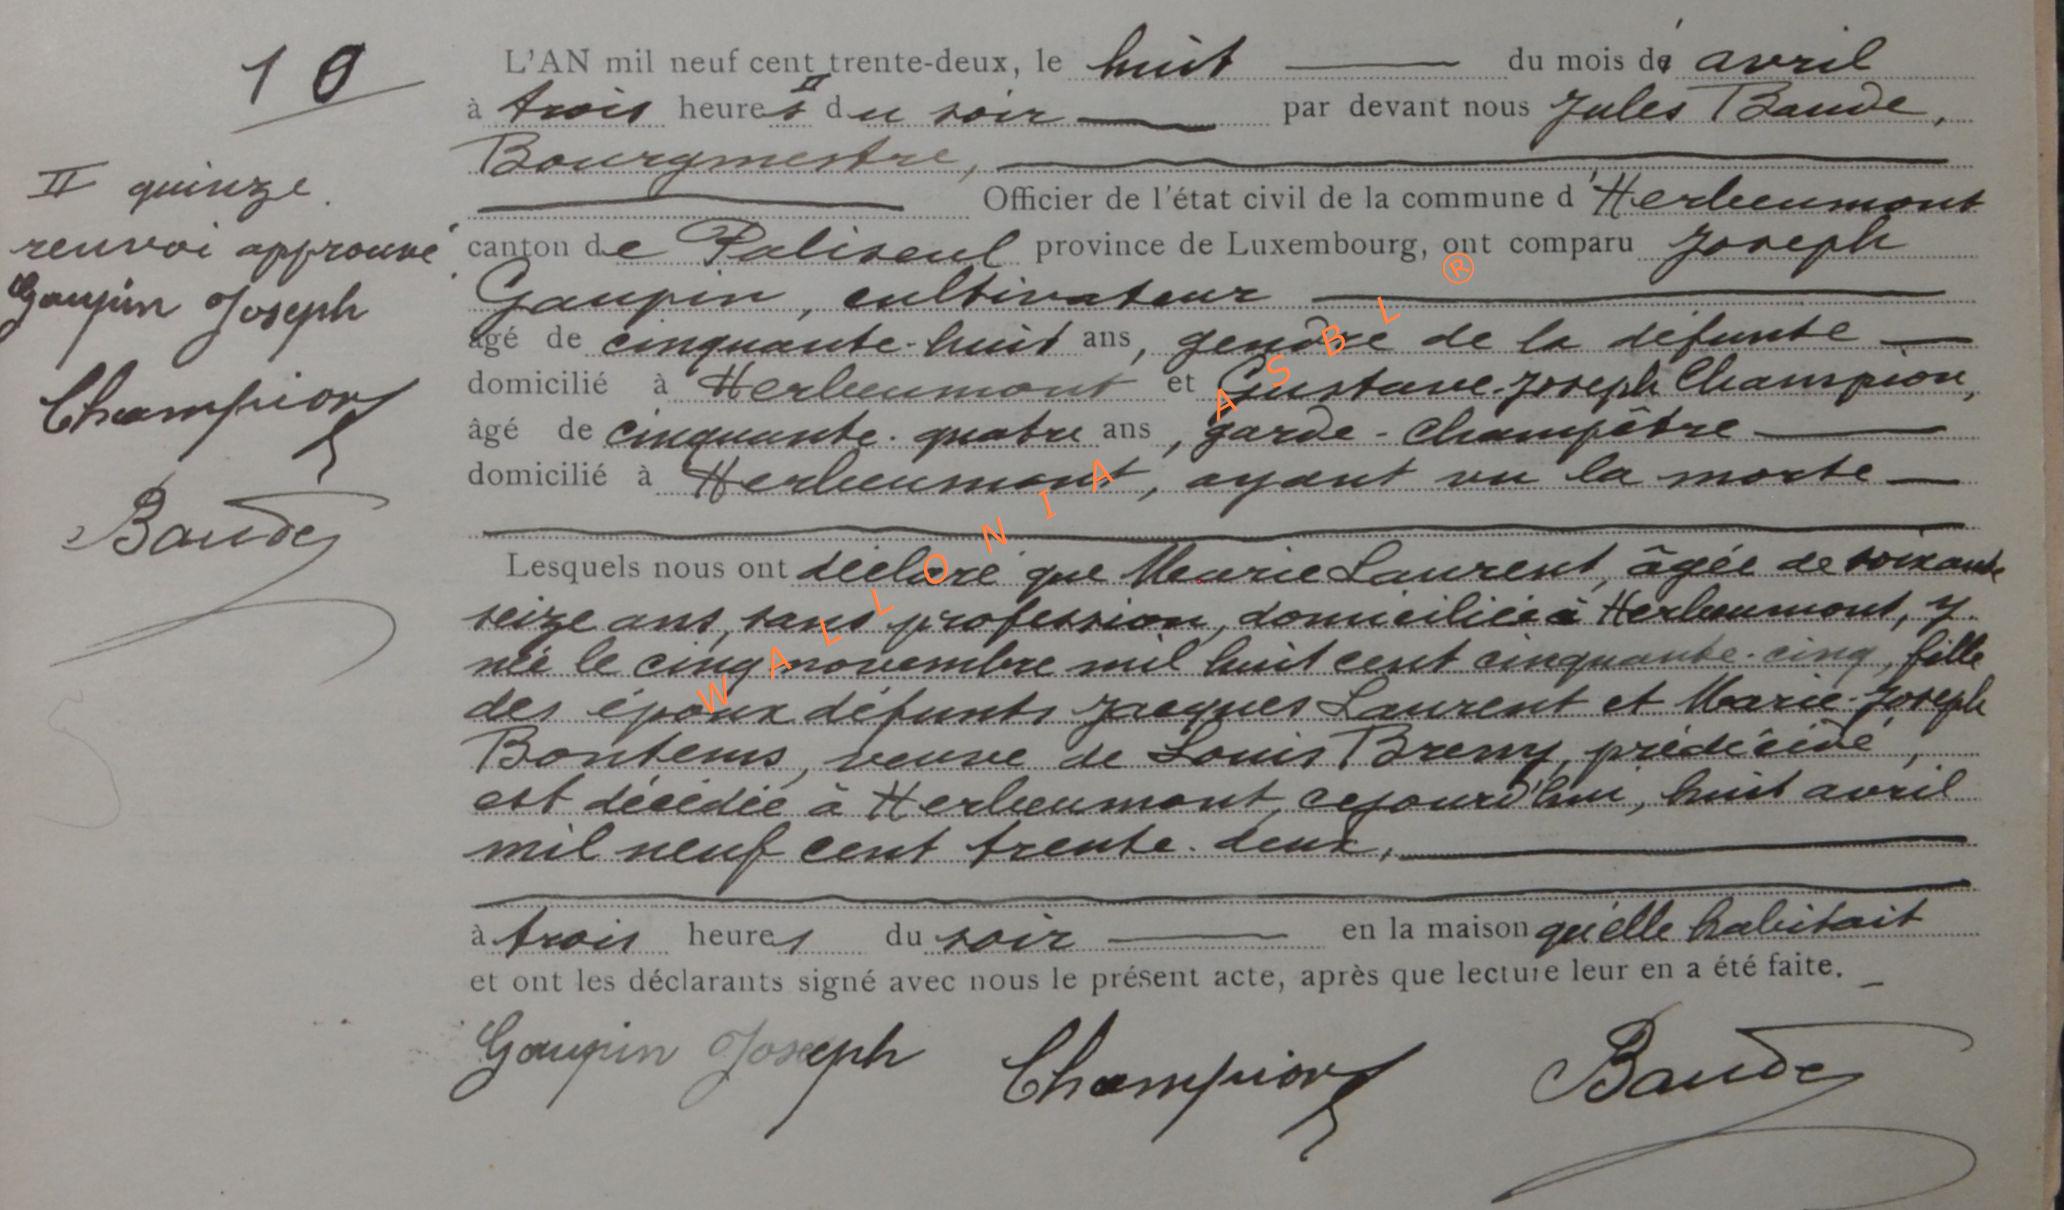 10
II quinze.
renvoi approuvé.
Gaupin Joseph
Champion
Baude
L'AN mil neuf cent trente-deux, le huit du mois de avril
à trois heures II du soir par devant nous Jules Baude,
Bourgmestre,
Officier de l'état civil de la commune d'Herbeumont
canton de Paliseul province de Luxembourg, ont comparu Joseph
Gaupin, cultivateur
âgé de cinquante-huit ans, gendre de la défunte
domicilié à Herbeumont et Gustave-Joseph Champion,
âgé de cinquante-quatre ans, garde-champêtre
domicilié à Herbeumont, ayant vu la morte
Lesquels nous ont déclaré que Marie Laurent, âgée de soixante
seize ans, sans profession, domiciliée à Herbeumont, y
née le cinq novembre mil huit cent cinquante-cinq, fille
des époux défunts Jacques Laurent et Marie-Joseph
Bontems, veuve de Louis Bremy, prédécédé,
est décédée à Herbeumont, cejourd'hui, huit avril
mil neuf cent trente-deux,
à trois heures du soir en la maison qu'elle habitait
et ont les déclarants signé avec nous le présent acte, après que lecture leur en a été faite.
Gaupin Joseph Champion Baude
WALLONIA ASBL ®